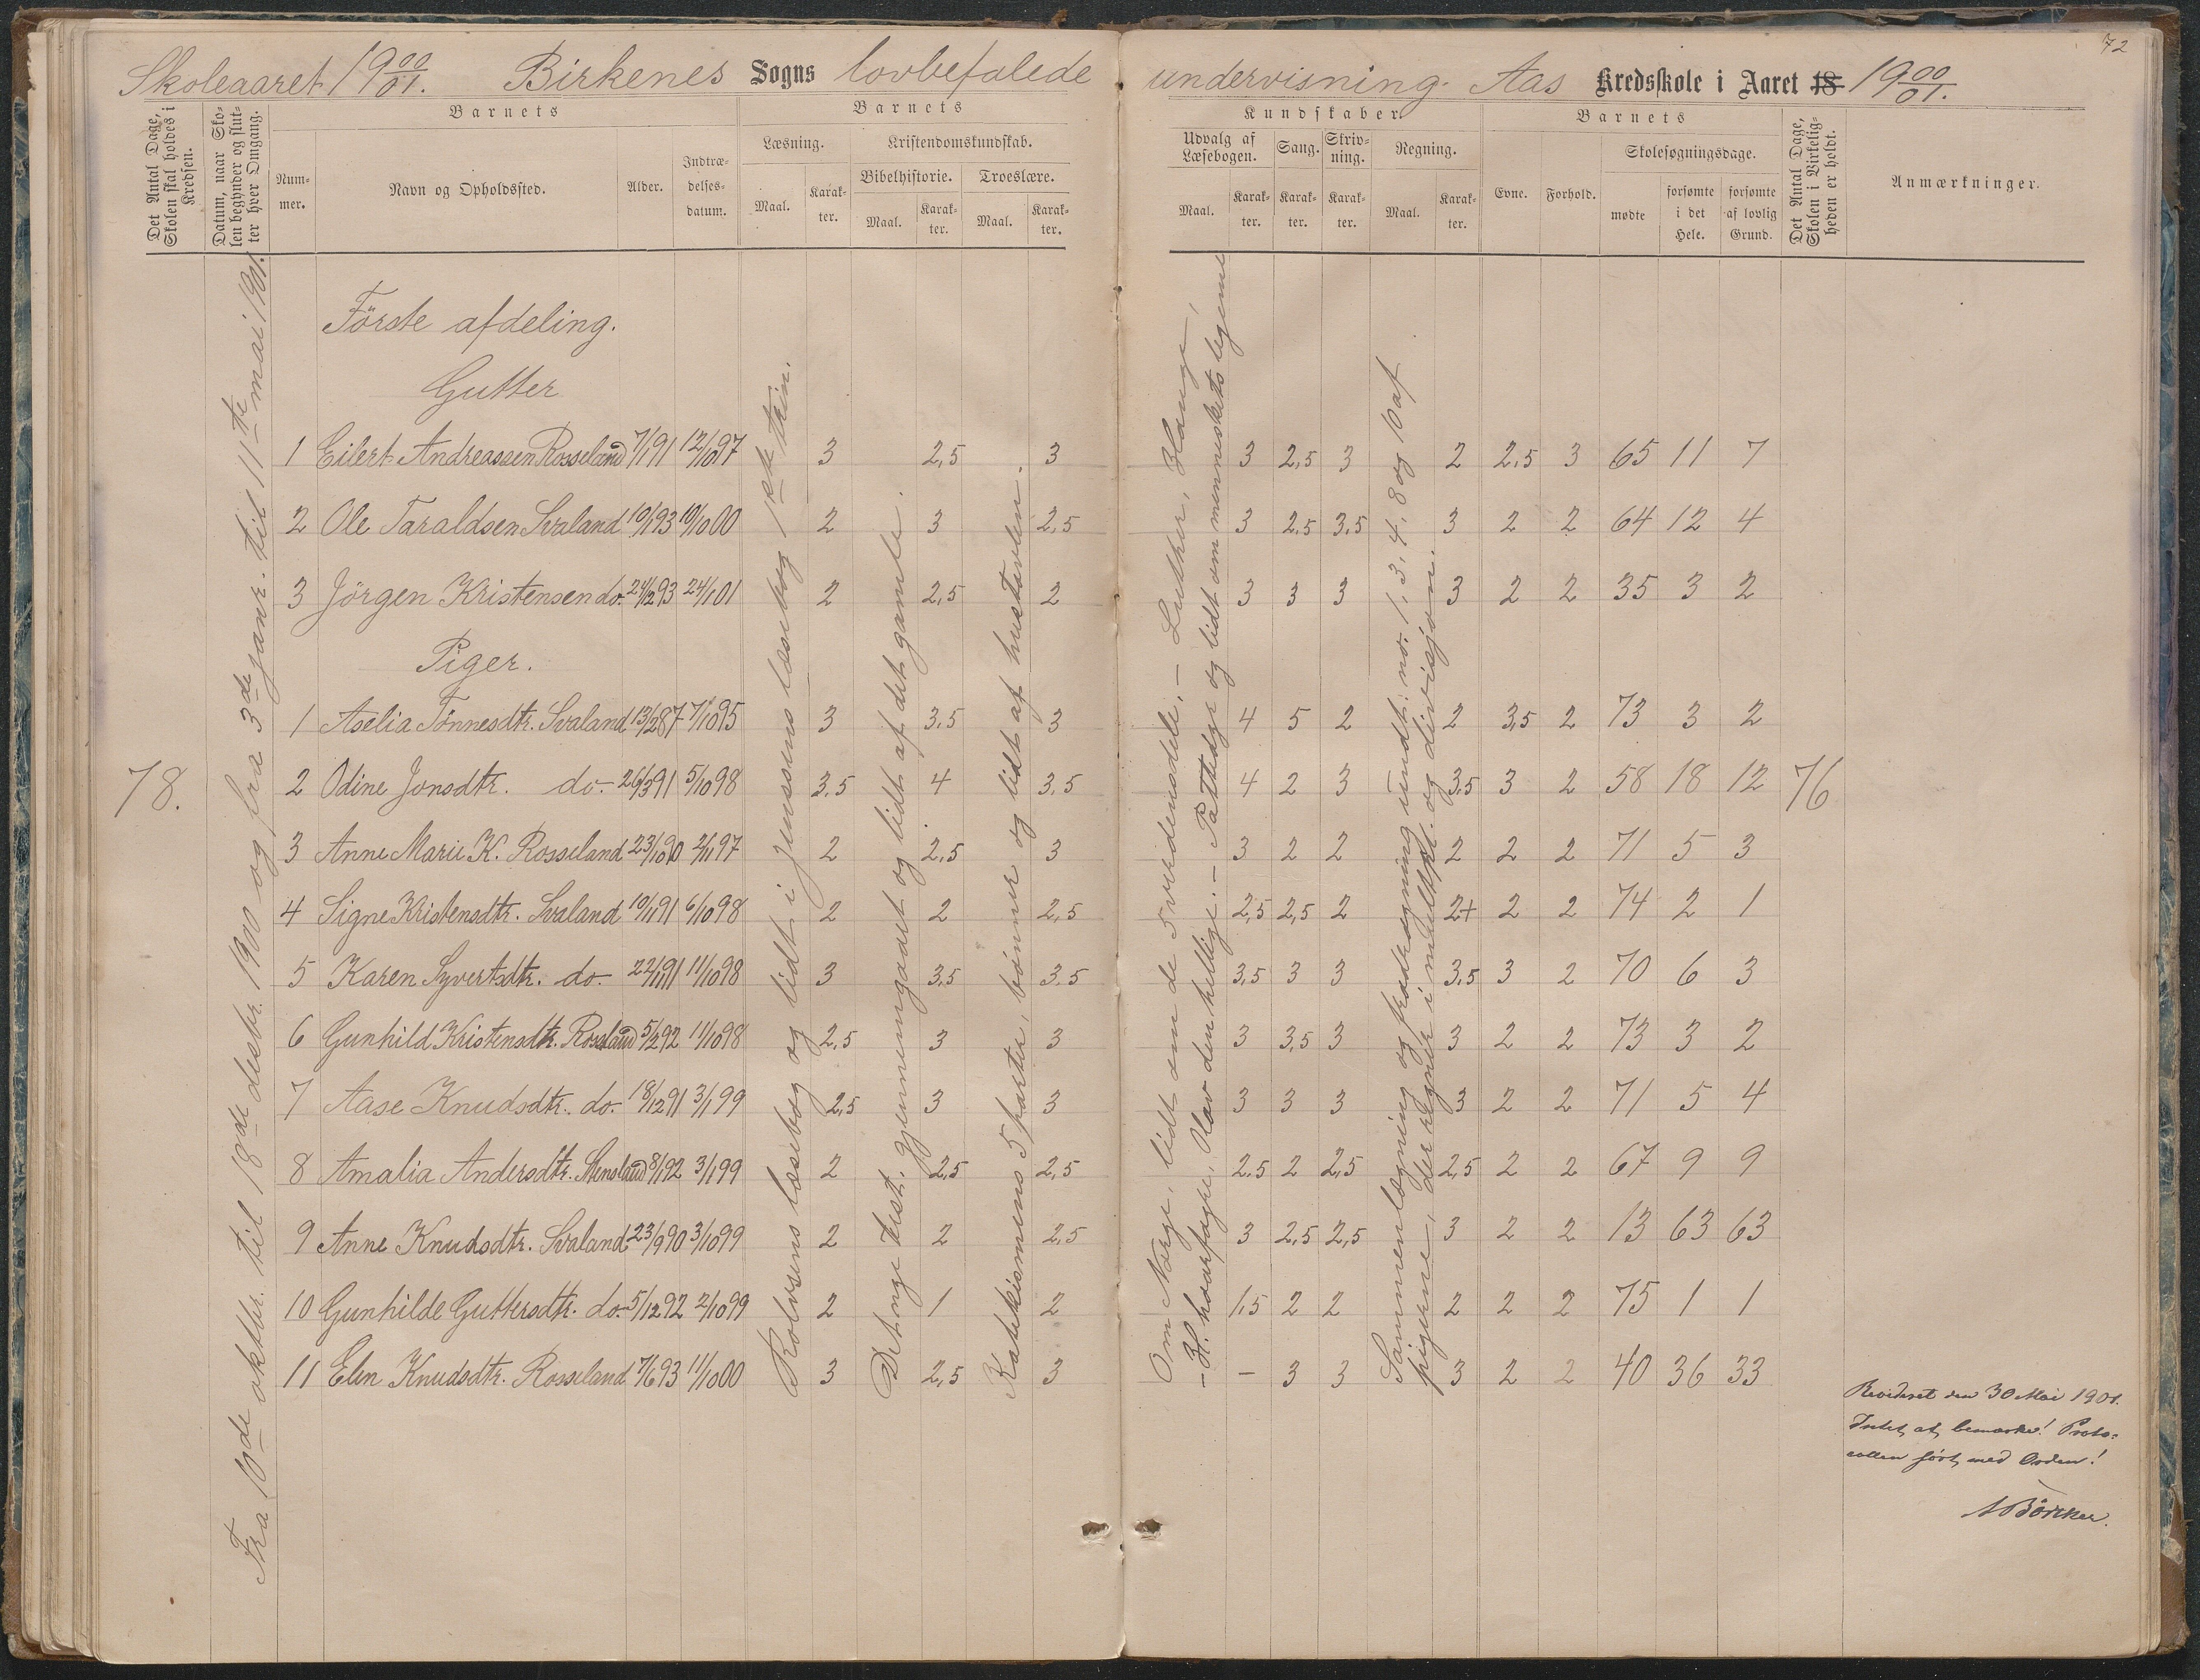 72
Skoleaaret 19 00/01. Birkenes Sogns lovbefalede undervisning. Aas Kredsskole i Aaret 18 19 00/01.
Det Antal Dage, Skolen skal holdes i Kredsen.
Datum, naar Skolen begynder og slutter hver Omgang.
Barnets
Nummer.
Navn og Opholdssted.
Alder.
Indtrædelsesdatum.
Barnets
Læsning.
Maal.
Karakter.
Kristendomskundskab.
Bibelhistorie.
Maal.
Karakter.
Troeslære.
Maal.
Karakter.
Kundskaber.
Udvalg af Læsebogen.
Maal.
Karakter.
Sang.
Karakter.
Skrivning.
Karakter.
Regning.
Maal.
Karakter.
Barnets
Evne.
Forhold.
Skolesøgningsdage.
mødte
forsømte i det Hele.
forsømte af lovlig Grund.
Det Antal Dage, Skolen i Virkeligheden er holdt.
Anmærkninger.
78.
Fra 10de oktbr. til 18de desbr. 1900 og fra 3de janr. til 11te mai 1901.
Rolvsens læsebog og lidt i Jenssens læsebog 1ste trin.
Det nye test. gjennemgaaet og lidt af det gamle.
Katekismens 5 parter, bønner og lidt af hustavlen.
Om Norge, lidt om de 5 verdensdele. – Luther, Hauge,
– H. haarfagre, Olav den hellige. – Pattedyr og lidt om menneskets legeme
Sammenlægning og fradragning undt. no. 1, 3, 4, 8 og 10 af
pigerne, der regner i multipl. og divisjon.
Förste afdeling.
Gutter
1 Eilert Andreassen Rosseland 7/1 91 12/10 97 3 2,5 3 3 2,5 3 2 2,5 3 65 11 7
2 Ole Taraldsen Svaland 10/1 93 10/10 00 2 3 2,5 3 2,5 3,5 3 2 2 64 12 4
3 Jörgen Kristensen do. 24/12 93 24/1 01 2 2,5 2 3 3 3 3 2 2 35 3 2
Piger.
1 Aselia Tönnesdtr. Svaland 13/2 87 7/10 95 3 3,5 3 4 5 2 2 3,5 2 73 3 2
2 Odine Jonsdtr. do. 26/3 91 5/10 98 3,5 4 3,5 4 2 3 3,5 3 2 58 18 12 76
3 Anne Marie K. Rosseland 23/10 90 2/1 97 2 2,5 3 3 2 2 2 2 2 71 5 3
4 Signe Kristensdtr. Svaland 10/1 91 6/10 98 2 2 2,5 2,5 2,5 2 2+ 2 2 74 2 1
5 Karen Syvertsdtr. do. 22/11 91 11/10 98 3 3,5 3,5 3,5 3 3 3,5 3 2 70 6 3
6 Gunhild Kristensdtr. Rosseland 5/2 92 11/10 98 2,5 3 3 3 3,5 3 3 2 2 73 3 2
7 Aase Knudsdtr. do. 18/12 91 3/1 99 2,5 3 3 3 3 3 3 2 2 71 5 4
8 Amalia Andersdtr. Stensland 8/1 92 3/1 99 2 2,5 2,5 2,5 2 2,5 2,5 2 2 67 9 9
9 Anne Knudsdtr. Svaland 23/9 90 3/10 99 2 2 2,5 3 2,5 2,5 3 2 2 13 63 63
10 Gunhilde Guttersdtr. do. 5/12 92 2/10 99 2 1 2 1,5 2 2 2 2 2 75 1 1
11 Elen Knudsdtr. Rosseland 7/6 93 11/10 00 3 2,5 3 – 3 3 3 2 2 40 36 33
Revideret den 30 Mai 1901.
Intet at bemærke! Proto-
collen ført med Orden!